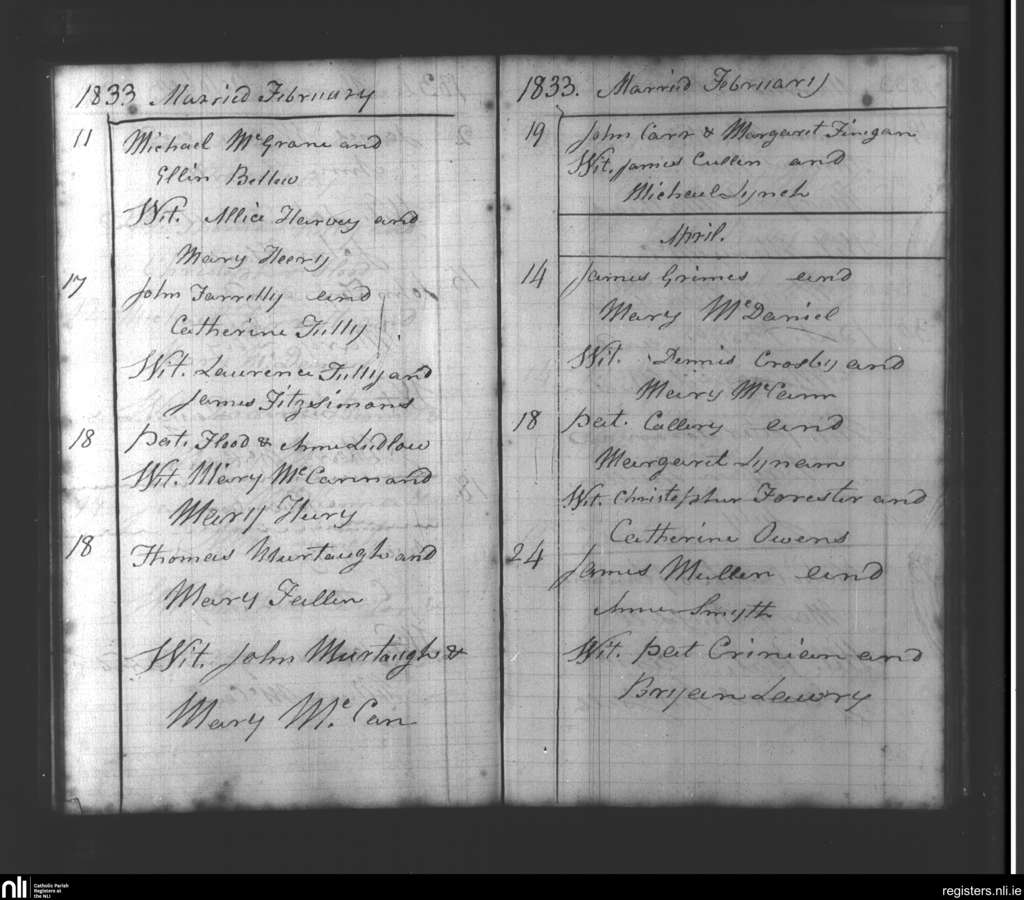 1833 Married February
11 Michael McGrane and
Ellin Bellew
Wit. Allice Harvey and
Mary Heery
17 John Farrelly and
Catherine Tully
Wit. Laurence Tully and
James Fitzsimons
18 Pat. Flood & Anne Ludlow
Wit. Mary McCann and
Mary Hury
18 Thomas Murtaugh and
Mary Fallen
Wit. John Murtaugh &
Mary Mc. Can
1833. Married February
19 John Carr & Margaret Finigan
Wit. James Cullen and
Micheal Lynch
April.
14 James Grimes and
Mary McDaniel
Wit. Dennis Crosby and
Mary McCann
18 Pat. Callery and
Margaret Lynam
Wit. Christopher Forester and
Catherine Owens
24 James Mullen and
Anne Smyth
Wit. Pat Crinian and
Bryan Lawry
nli Catholic Parish
Registers at
the NLI
registers.nli.ie